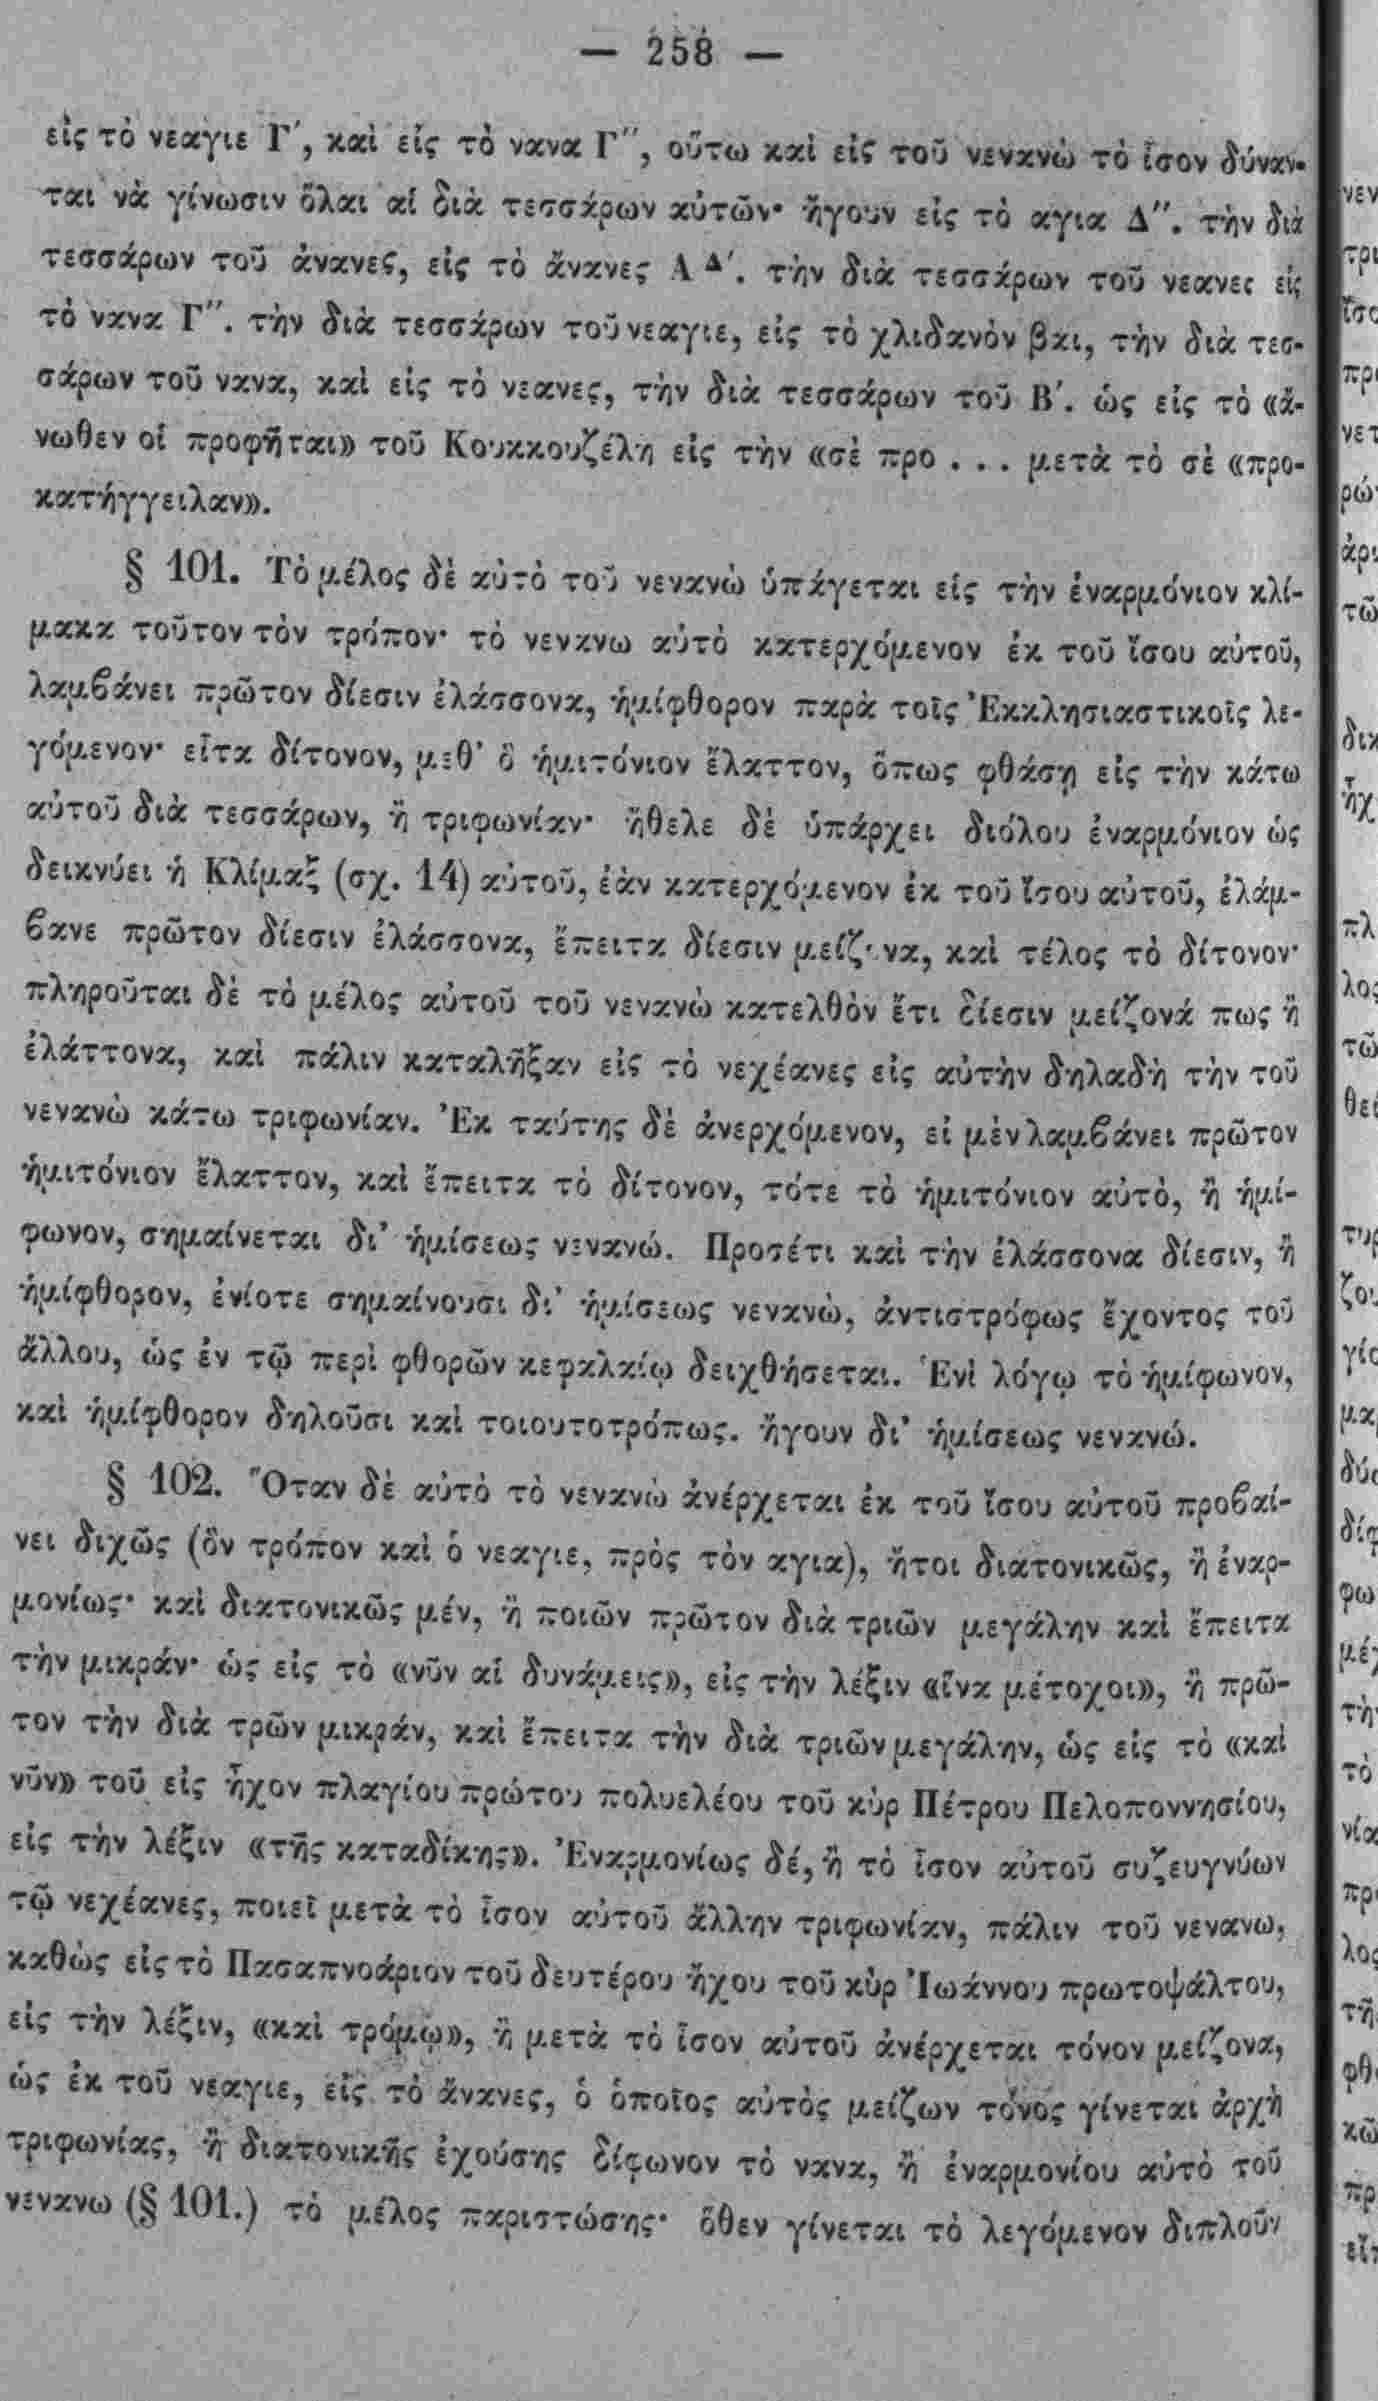 — 258 —
εἰς τὸ νεαγιε Γ', καὶ εἰς τὸ νανα Γ'', οὕτω καὶ εἰς τοῦ νενανὼ τὸ ἴσον δύναν-
ται νὰ γίνωσιν ὅλαι αἱ διὰ τεσσάρων αὐτῶν· ἤγουν εἰς τὸ αγια Δ''. τὴν διὰ
τεσσάρων τοῦ ἀνανες, εἰς τὸ ἄνανες Α Δ'. τὴν διὰ τεσσάρων τοῦ νεανες εἰς
τὸ νανα Γ''. τὴν διὰ τεσσάρων τοῦ νεαγιε, εἰς τὸ χλιδανὸν βαι, τὴν διὰ τεσ-
σάρων τοῦ νανα, καὶ εἰς τὸ νεανες, τὴν διὰ τεσσάρων τοῦ Β'. ὡς εἰς τὸ «ἄ-
νωθεν οἱ προφῆται» τοῦ Κουκκουζέλη εἰς τὴν «σὲ προ . . . μετὰ τὸ σὲ «προ-
κατήγγειλαν».
§ 101. Τὸ μέλος δὲ αὐτὸ τοῦ νενανὼ ὑπάγεται εἰς τὴν ἐναρμόνιον κλί-
μακα τοῦτον τὸν τρόπον· τὸ νενανω αὐτὸ κατερχόμενον ἐκ τοῦ ἴσου αὐτοῦ,
λαμβάνει πρῶτον δίεσιν ἐλάσσονα, ἡμίφθορον παρὰ τοῖς Ἐκκλησιαστικοῖς λε-
γόμενον· εἶτα δίτονον, μεθ' ὃ ἡμιτόνιον ἔλαττον, ὅπως φθάσῃ εἰς τὴν κάτω
αὐτοῦ διὰ τεσσάρων, ἢ τριφωνίαν· ἤθελε δὲ ὑπάρχει διόλου ἐναρμόνιον ὡς
δεικνύει ἡ Κλίμαξ (σχ. 14) αὐτοῦ, ἐὰν κατερχόμενον ἐκ τοῦ ἴσου αὐτοῦ, ἐλάμ-
βανε πρῶτον δίεσιν ἐλάσσονα, ἔπειτα δίεσιν μείζονα, καὶ τέλος τὸ δίτονον·
πληροῦται δὲ τὸ μέλος αὐτοῦ τοῦ νενανὼ κατελθὸν ἔτι δίεσιν μείζονά πως ἢ
ἐλάττονα, καὶ πάλιν καταλῆξαν εἰς τὸ νεχέανες εἰς αὐτὴν δηλαδὴ τὴν τοῦ
νενανὼ κάτω τριφωνίαν. Ἐκ ταύτης δὲ ἀνερχόμενον, εἰ μὲν λαμβάνει πρῶτον
ἡμιτόνιον ἔλαττον, καὶ ἔπειτα τὸ δίτονον, τότε τὸ ἡμιτόνιον αὐτὸ, ἢ ἡμί-
φωνον, σημαίνεται δι' ἡμίσεως νενανώ. Προσέτι καὶ τὴν ἐλάσσονα δίεσιν, ἢ
ἡμίφθορον, ἐνίοτε σημαίνουσι δι' ἡμίσεως νενανὼ, ἀντιστρόφως ἔχοντος τοῦ
ἄλλου, ὡς ἐν τῷ περὶ φθορῶν κεφαλαίῳ δειχθήσεται. Ἑνὶ λόγῳ τὸ ἡμίφωνον,
καὶ ἡμίφθορον δηλοῦσι καὶ τοιουτοτρόπως. ἤγουν δι' ἡμίσεως νενανώ.
§ 102. Ὅταν δὲ αὐτὸ τὸ νενανὼ ἀνέρχεται ἐκ τοῦ ἴσου αὐτοῦ προβαί-
νει διχῶς (ὃν τρόπον καὶ ὁ νεαγιε, πρὸς τὸν αγια), ἤτοι διατονικῶς, ἢ ἐναρ-
μονίως· καὶ διατονικῶς μέν, ἢ ποιῶν πρῶτον διὰ τριῶν μεγάλην καὶ ἔπειτα
τὴν μικράν· ὡς εἰς τὸ «νῦν αἱ δυνάμεις», εἰς τὴν λέξιν «ἵνα μέτοχοι», ἢ πρῶ-
τον τὴν διὰ τρῶν μικράν, καὶ ἔπειτα τὴν διὰ τριῶν μεγάλην, ὡς εἰς τὸ «καὶ
νῦν» τοῦ εἰς ἦχον πλαγίου πρώτου πολυελέου τοῦ κὺρ Πέτρου Πελοποννησίου,
εἰς τὴν λέξιν «τῆς καταδίκης». Ἐναρμονίως δέ, ἢ τὸ ἴσον αὐτοῦ συζευγνύων
τῷ νεχέανες, ποιεῖ μετὰ τὸ ἴσον αὐτοῦ ἄλλην τριφωνίαν, πάλιν τοῦ νενανω,
καθὼς εἰς τὸ Πασαπνοάριον τοῦ δευτέρου ἤχου τοῦ κὺρ Ἰωάννου πρωτοψάλτου,
εἰς τὴν λέξιν, «καὶ τρόμῳ», ἢ μετὰ τὸ ἴσον αὐτοῦ ἀνέρχεται τόνον μείζονα,
ὡς ἐκ τοῦ νεαγιε, εἰς τὸ ἄνανες, ὁ ὁποῖος αὐτὸς μείζων τόνος γίνεται ἀρχὴ
τριφωνίας, ἢ διατονικῆς ἐχούσης δίφωνον τὸ νανα, ἢ ἐναρμονίου αὐτὸ τοῦ
νενανω (§ 101.) τὸ μέλος παριστώσης· ὅθεν γίνεται τὸ λεγόμενον διπλοῦν